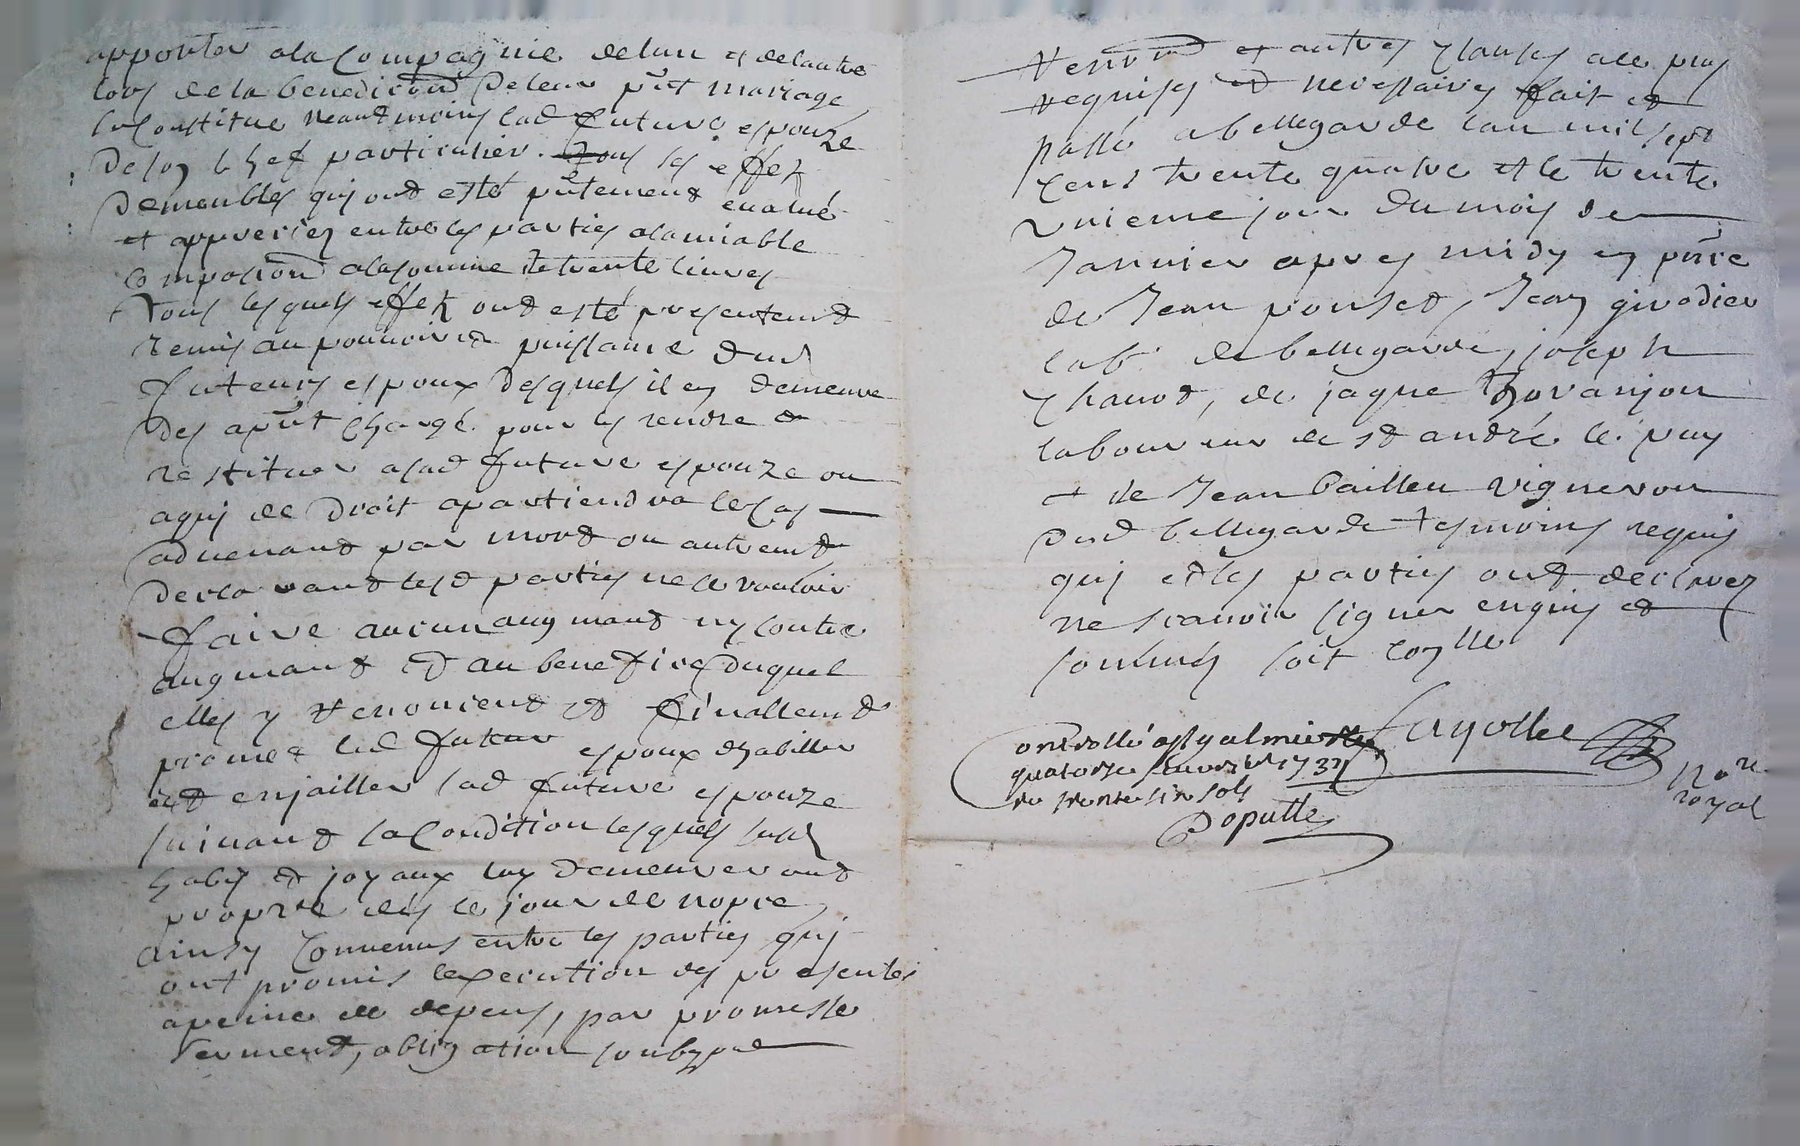 apporter a la Compagnie de lun et de lautre
lors de la benedicōn De leur pn̄t mariage
Se Constitue neantmoins lad future espouze
De son Chef particulier. Tous les effez
De meubles quj ont esté pn̄tement evalué
et appreciez entre les parties a lamiable
Composiōn a la somme de trente liures
Tous lesquels effez ont esté presentemt
remis au pouuoir et puissance dud
futeurs espoux Desquels il en demeure
Des apn̄t Chargé pour les rendre et
restituer a sad future espouze ou
a quj de Droit apartiendra le Cas
aduenant par mort ou autremt
Declarant lesd parties ne ce vouloir
faire aucun augmant ny contre
augmant et au benefice Duquel
elles y renoncent et finallemt
promet led futeur espoux dhabiller
et enjailler lad future espouze
suiuant sa Condition lesquels susd
habis et joyaux luy demeureront
propre dès le jour de nopce,
ainsy Conuenus entre les parties quj
ont promis lexecution des presentes
a peine de depens, par promesse
serment, obligation soubz pne
renōn et autres Clauses a ce plus
requises et necessaires fait et
passé a bellegarde lan mil sept
Cens trente quatre et le trente
vnieme jour du mois de
Januier apres midy en pn̄ce
de Jean ponset, Jean girodier
lab. de bellegarde, joseph
Chanot, de jaque thoranjon
laboureur de st andré le puy
et de Jean bailleu vigneron
Dud bellegarde tesmoins requis
quj et les parties ont declarez
ne scauoir signer enquis et
sommés soit coplle
Controllé a St galmier le
quatorze feurier 1734
re trente six sols
Doputte
fayolle
No.re
royal